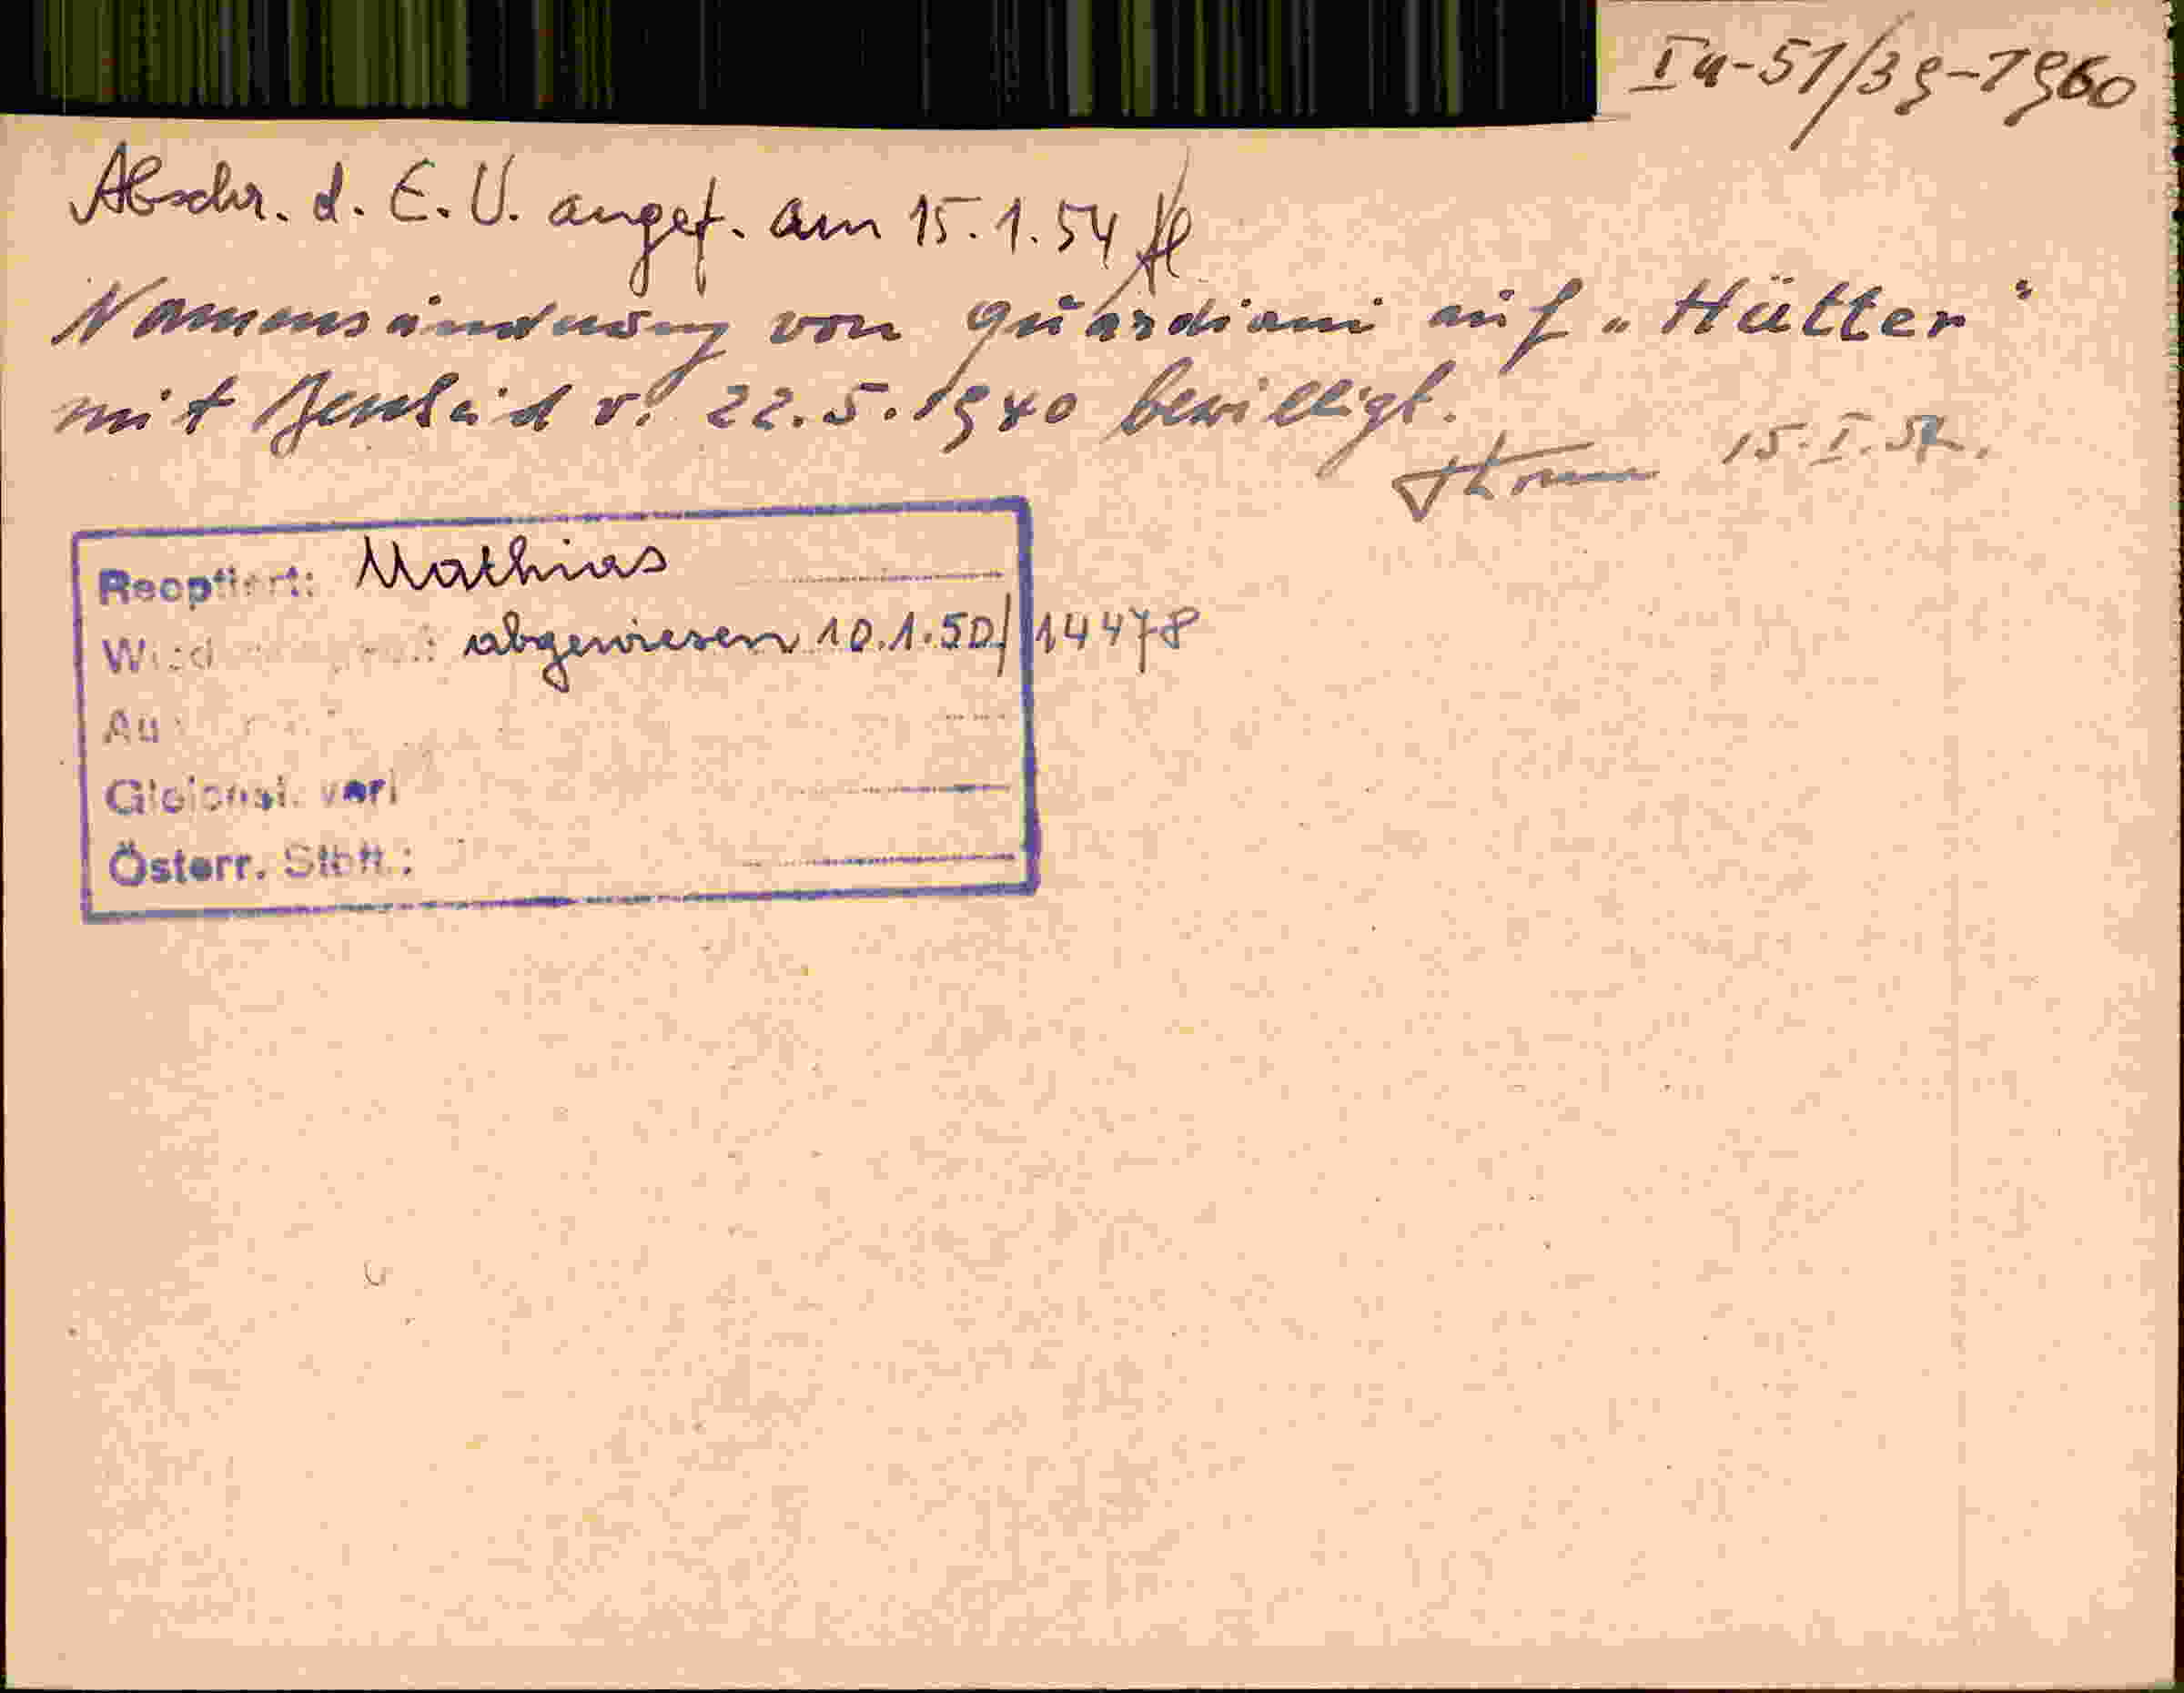 Ia-51/39-1960
Abschr. d. E. U. angef. am 15.1.54
Namensänderung von Guardiani auf „Hütter“
mit Bescheid v. 22.5.1940 bewilligt.
15.I.54.
Reoptiert: Mathias
abgewiesen 10.1.50/14478
Österr. Stbft.: